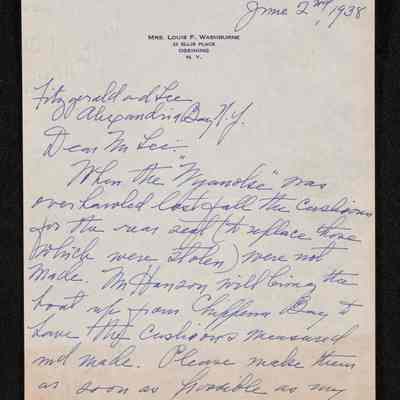 June 2nd, 1938
MRS. LOUIS F. WASHBURNE
22 ELLIS PLACE
OSSINING
N. Y.
Fitzgerald and Lee
Alexandria Bay, N.Y.
Dear Mr Lee:
When the "Wyanoke" was
overhauled last fall the cushions
for the rear seat (to replace those
which were stolen) were not
made. Mr Hanson will bring the
boat up from Chippewa Bay to
have the cushions measured
and made. Please make them
as soon as possible as my